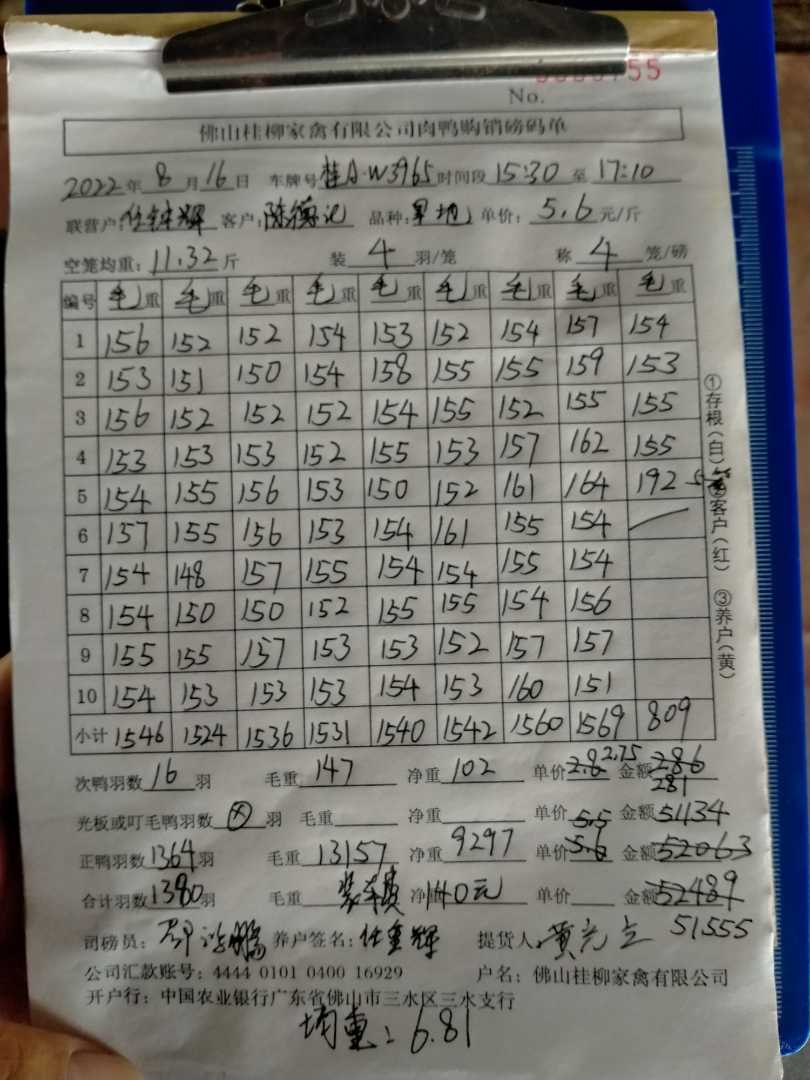 No. 755
佛山桂柳家禽有限公司肉鸭购销磅码单
2022年8月16日 车牌号桂A·W3965时间段15:30至17:10
联营户: 客户: 陈德记 品种: 单价: 5.6元/斤
空笼均重: 11.32斤 装4羽/笼 称4笼/磅
编号 毛重 毛重 毛重 毛重 毛重 毛重 毛重 毛重 毛重
1 156 152 152 154 153 152 154 157 154
2 153 151 150 154 158 155 155 159 153
3 156 152 152 152 154 155 152 155 155
4 153 153 153 152 155 153 157 162 155
5 154 155 156 153 150 152 161 164 192
6 157 155 156 153 154 161 155 154
7 154 148 157 155 154 154 155 154
8 154 150 150 152 155 155 154 156
9 155 155 157 153 153 152 157 157
10 154 153 153 153 154 153 160 151
小计 1546 1524 1536 1531 1540 1542 1560 1569 809
①存根(白)②客户(红) ③养户(黄)
次鸭羽数16羽 毛重147 净重102 单价2.8 2.75 金额286 281
光板或叮毛鸭羽数 羽 毛重 净重 单价 金额
正鸭羽数1364羽 毛重13157 净重9297 单价5.6 5.5 金额52063 51134
合计羽数1380羽 毛重装车费 净重140元 单价 金额52489
司磅员: 鹏 养户签名: 任重辉 提货人: 黄 51555
公司汇款账号: 4444 0101 0400 16929 户名: 佛山桂柳家禽有限公司
开户行: 中国农业银行广东省佛山市三水区三水支行
均重: 6.81